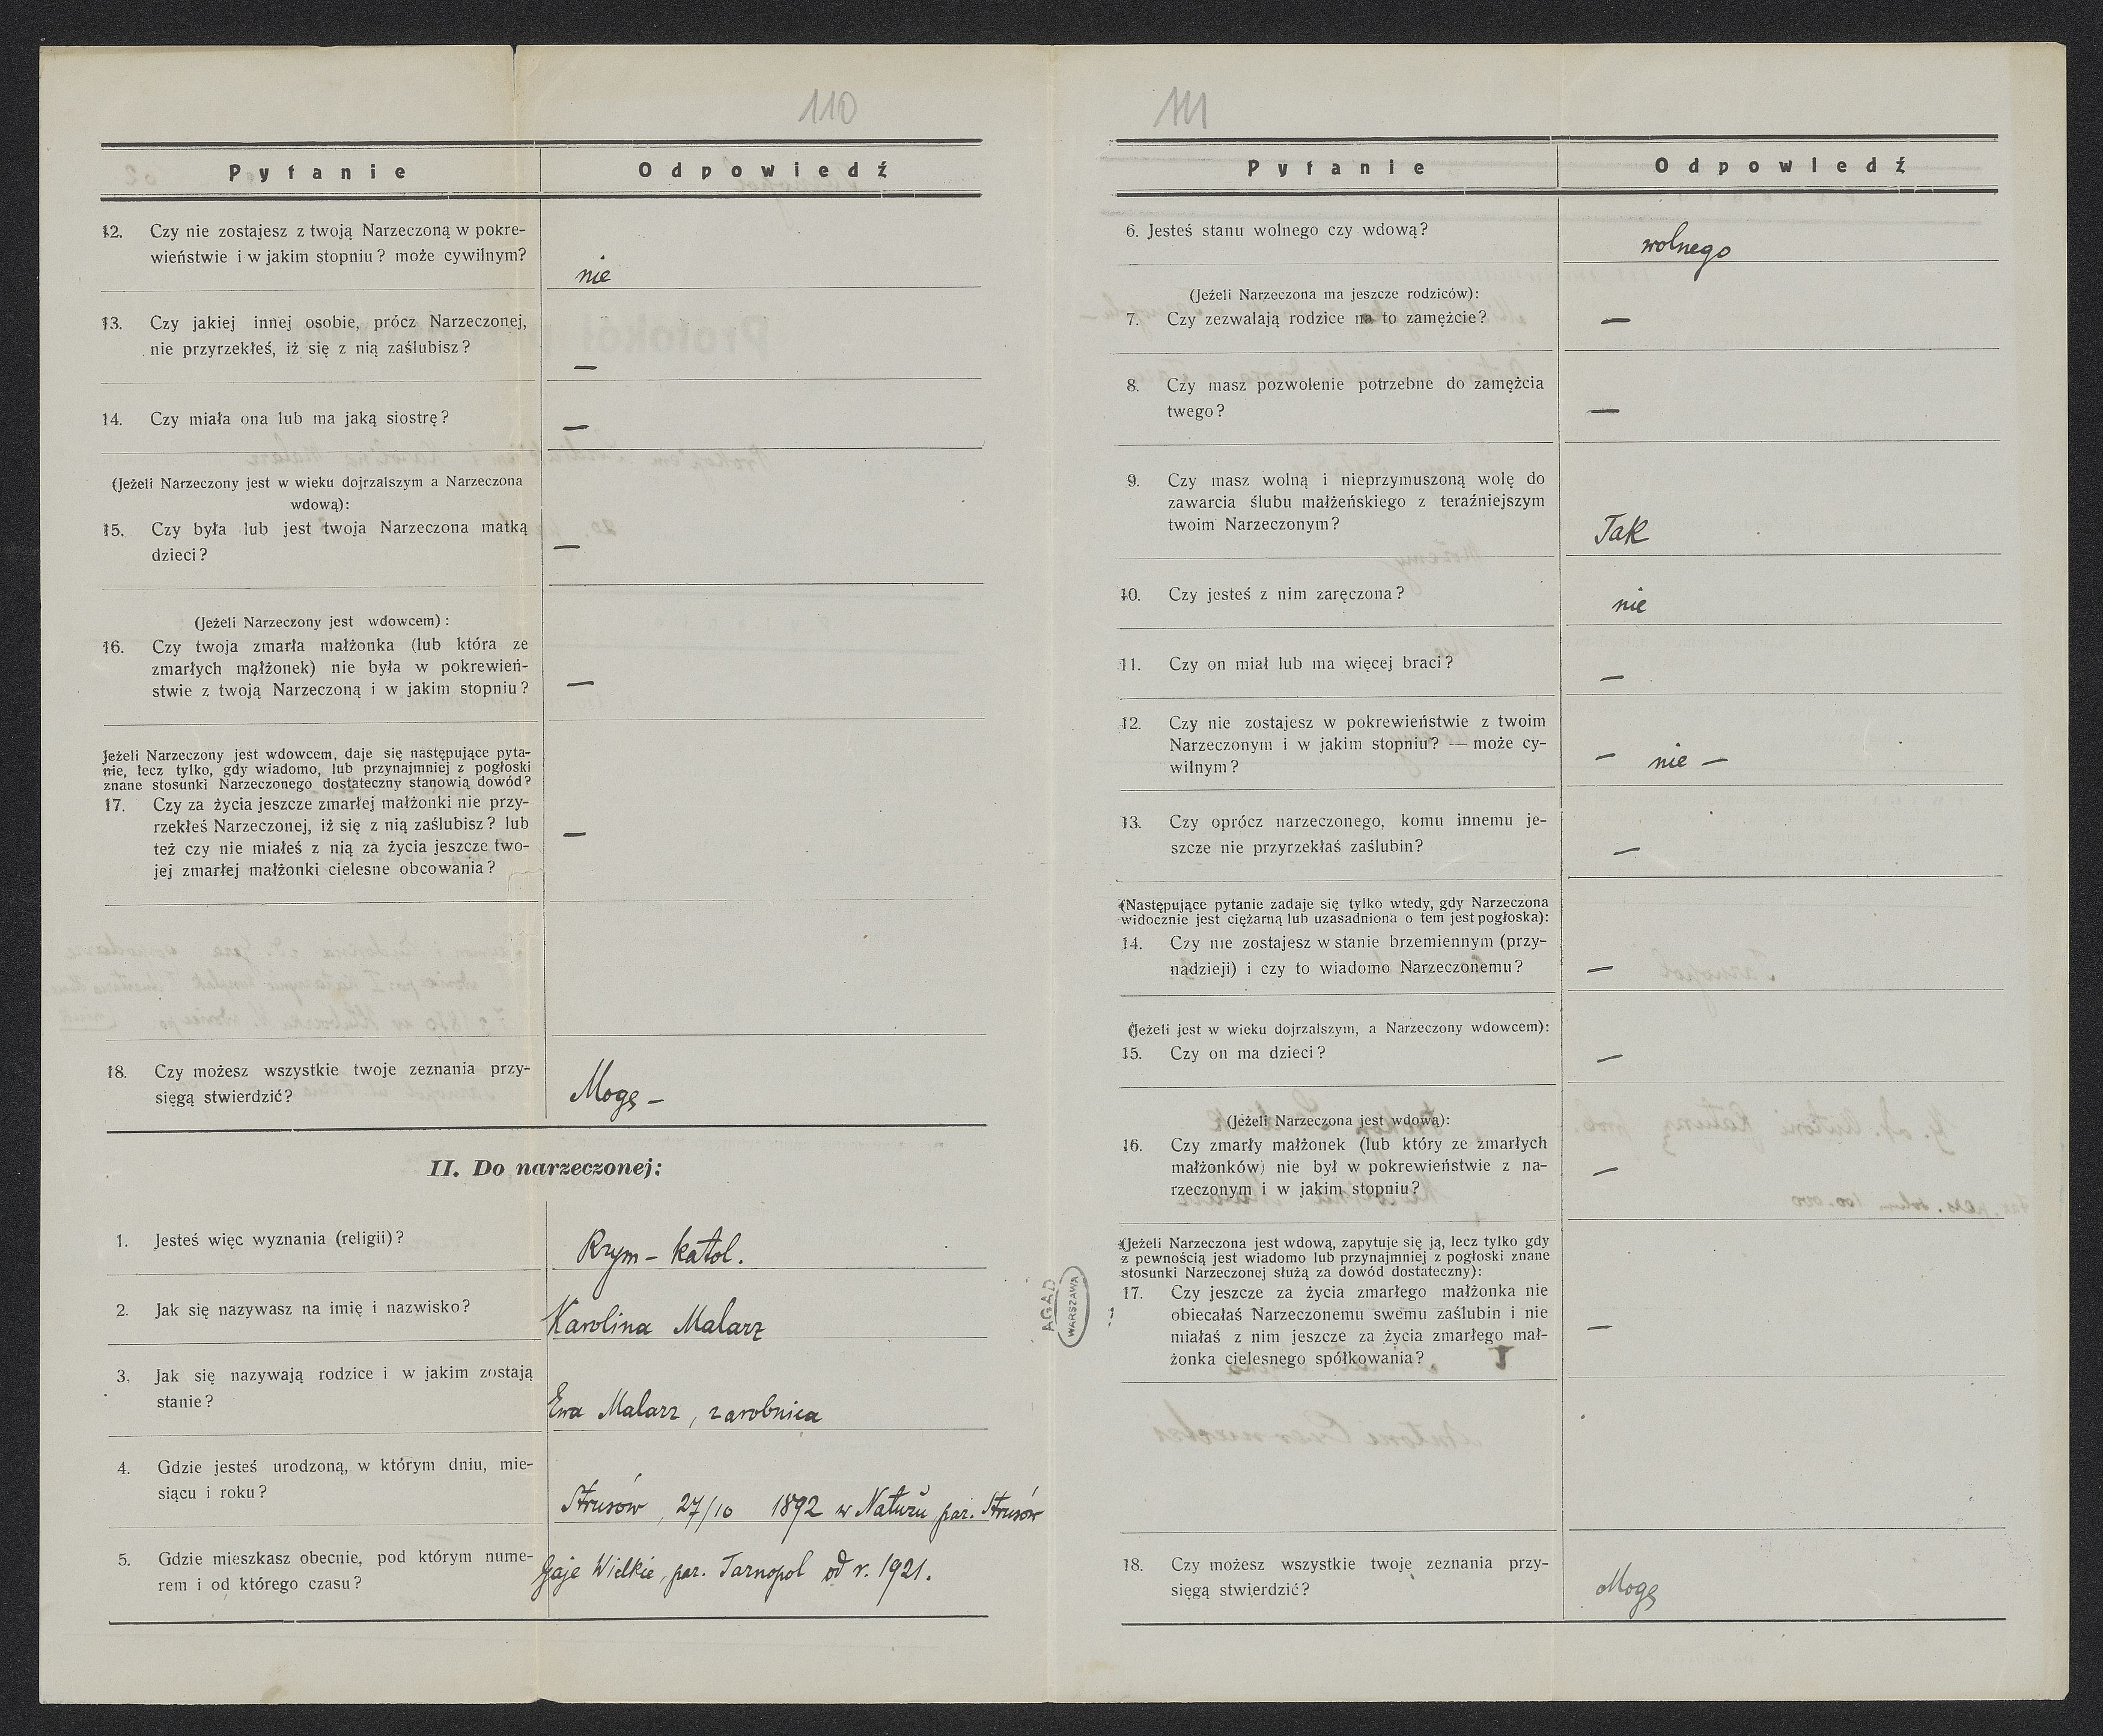 110
Pytanie Odpowiedź
12. Czy nie zostajesz z twoją Narzeczoną w pokre-
wieństwie i w jakim stopniu? może cywilnym?
nie
13. Czy jakiej innej osobie, prócz Narzeczonej,
nie przyrzekłeś, iż się z nią zaślubisz?
—
14. Czy miała ona lub ma jaką siostrę?
—
(Jeżeli Narzeczony jest w wieku dojrzalszym a Narzeczona
wdową):
15. Czy była lub jest twoja Narzeczona matką
dzieci?
—
(Jeżeli Narzeczony jest wdowcem):
16. Czy twoja zmarła małżonka (lub która ze
zmarłych małżonek) nie była w pokrewień-
stwie z twoją Narzeczoną i w jakim stopniu?
—
Jeżeli Narzeczony jest wdowcem, daje się następujące pyta-
nie, lecz tylko, gdy wiadomo, lub przynajmniej z pogłoski
znane stosunki Narzeczonego dostateczny stanowią dowód?
17. Czy za życia jeszcze zmarłej małżonki nie przy-
rzekłeś Narzeczonej, iż się z nią zaślubisz? lub
też czy nie miałeś z nią za życia jeszcze two-
jej zmarłej małżonki cielesne obcowania?
—
18. Czy możesz wszystkie twoje zeznania przy-
sięgą stwierdzić?
Mogę —
II. Do narzeczonej:
1. Jesteś więc wyznania (religii)?
Rzym - katol.
2. Jak się nazywasz na imię i nazwisko?
Karolina Malarz
3. Jak się nazywają rodzice i w jakim zostają
stanie?
Ewa Malarz, zarobnica
4. Gdzie jesteś urodzoną, w którym dniu, mie-
siącu i roku?
Strusów, 27/10 1892 w par. Strusów
5. Gdzie mieszkasz obecnie, pod którym nume-
rem i od którego czasu?
Gaje Wielkie, par. Tarnopol od r. 1921.
AGAD
WARSZAWA
111
Pytanie Odpowiedź
6. Jesteś stanu wolnego czy wdową?
wolnego
(Jeżeli Narzeczona ma jeszcze rodziców):
7. Czy zezwalają rodzice na to zamęźcie?
—
8. Czy masz pozwolenie potrzebne do zamęźcia
twego?
—
9. Czy masz wolną i nieprzymuszoną wolę do
zawarcia ślubu małżeńskiego z teraźniejszym
twoim Narzeczonym?
Tak
10. Czy jesteś z nim zaręczona?
nie
11. Czy on miał lub ma więcej braci?
—
12. Czy nie zostajesz w pokrewieństwie z twoim
Narzeczonym i w jakim stopniu? — może cy-
wilnym?
— nie —
13. Czy oprócz narzeczonego, komu innemu je-
szcze nie przyrzekłaś zaślubin?
—
(Następujące pytanie zadaje się tylko wtedy, gdy Narzeczona
widocznie jest ciężarną lub uzasadniona o tem jest pogłoska):
14. Czy nie zostajesz w stanie brzemiennym (przy-
nadzieji) i czy to wiadomo Narzeczonemu?
—
(Jeżeli jest w wieku dojrzalszym, a Narzeczony wdowcem):
15. Czy on ma dzieci?
—
(Jeżeli Narzeczona jest wdową):
16. Czy zmarły małżonek (lub który ze zmarłych
małżonków) nie był w pokrewieństwie z na-
rzeczonym i w jakim stopniu?
—
(Jeżeli Narzeczona jest wdową, zapytuje się ją, lecz tylko gdy
z pewnością jest wiadomo lub przynajmniej z pogłoski znane
stosunki Narzeczonej służą za dowód dostateczny):
17. Czy jeszcze za życia zmarłego małżonka nie
obiecałaś Narzeczonemu swemu zaślubin i nie
miałaś z nim jeszcze za życia zmarłego mał-
żonka cielesnego spółkowania?
—
18. Czy możesz wszystkie twoje zeznania przy-
sięgą stwierdzić?
Mogę